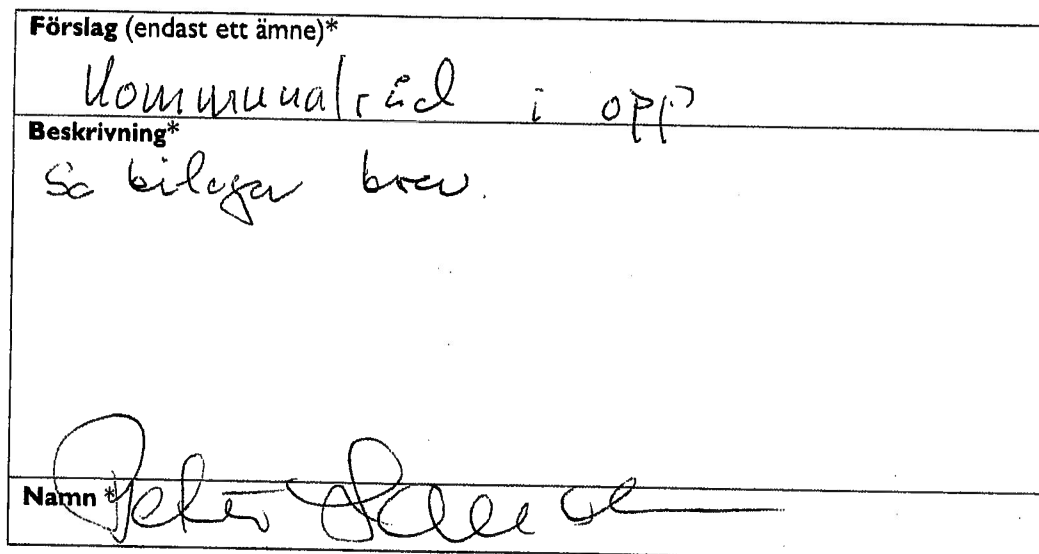 Förslag (endast ett ämne)*
Kommunalråd i opp
Beskrivning*
Se bilagor brev.
Namn *
Peter